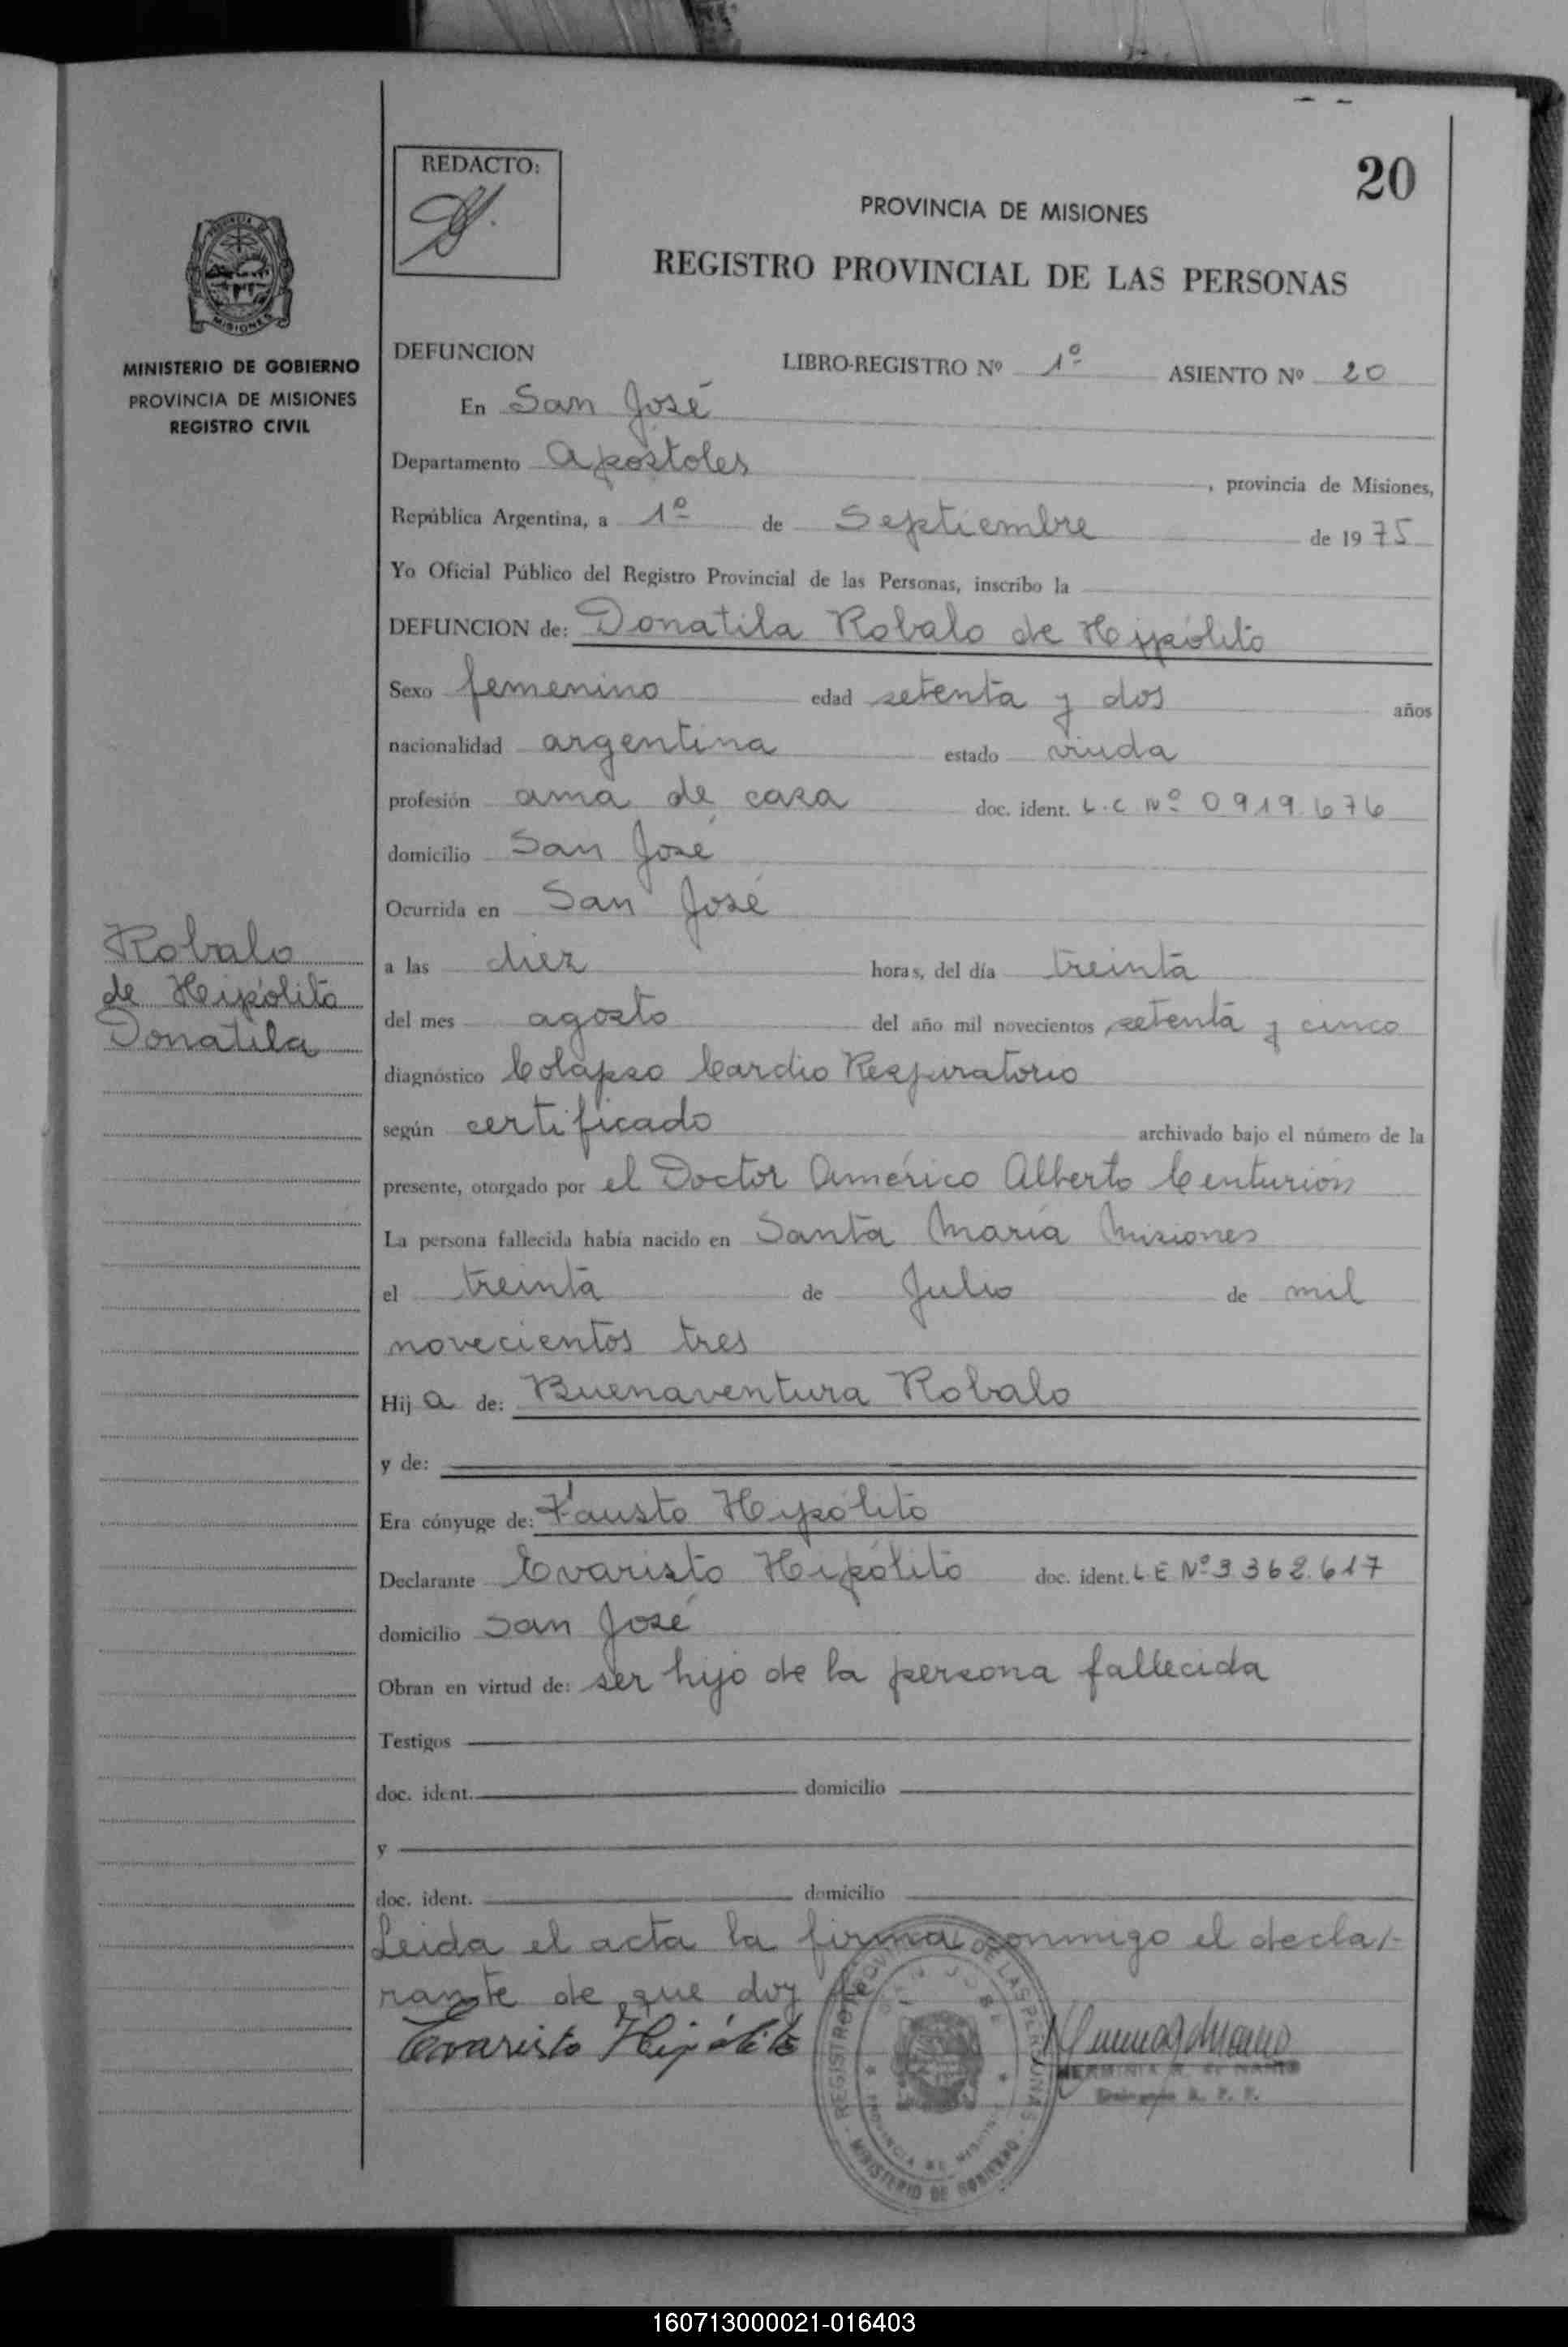 20
REDACTO:
PROVINCIA DE MISIONES
REGISTRO PROVINCIAL DE LAS PERSONAS
MISIONES
MINISTERIO DE GOBIERNO
PROVINCIA DE MISIONES
REGISTRO CIVIL
DEFUNCION LIBRO-REGISTRO Nº 1º ASIENTO Nº 20
En San José
Departamento Apóstoles, provincia de Misiones,
República Argentina, a 1º de Septiembre de 1975
Yo Oficial Público del Registro Provincial de las Personas, inscribo la
DEFUNCION de: Donatila Robalo de Hipólito
Sexo femenino edad setenta y dos años
nacionalidad argentina estado viuda
profesión ama de casa doc. ident. L.C Nº 0919.676
domicilio San José
Ocurrida en San José
Robalo
de Hipólito
Donatila
a las diez horas, del día treinta
del mes agosto del año mil novecientos setenta y cinco
diagnóstico Colapso Cardio Respiratorio
según certificado archivado bajo el número de la
presente, otorgado por el Doctor Américo Alberto Centurión
La persona fallecida había nacido en Santa María Misiones
el treinta de Julio de mil
novecientos tres
Hija de: Buenaventura Robalo
y de:
Era cónyuge de: Fausto Hipólito
Declarante Evaristo Hipólito doc. ident. L E Nº 3.362.617
domicilio San José
Obran en virtud de: ser hijo de la persona fallecida
Testigos
doc. ident. domicilio
y
doc. ident. domicilio
Leida el acta la firma conmigo el decla-
rante de que doy fe
Evaristo Hipólito
REGISTRO PROVINCIAL DE LAS PERSONAS
SAN JOSE
PROVINCIA DE MISIONES
MINISTERIO DE GOBIERNO
HERMINIA
160713000021-016403